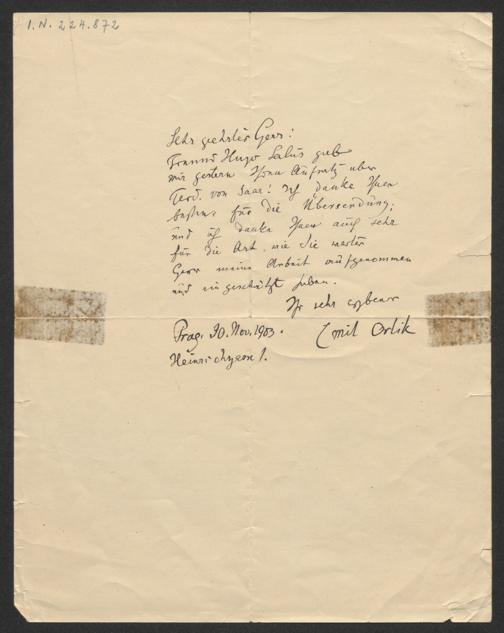 I.N. 224.872
Sehr geehrter Herr!
Freund Hugo Salus gab
mir gestern Ihren Aufsatz über
Ferd. von Saar! Ich danke Ihnen
bestens für die Übersendung;
und ich danke Ihnen auch sehr
für die Art, wie Sie werter
Herr meine Arbeit aufgenommen
und eingeschätzt haben.
Ihr sehr ergebener
Emil Orlik
Prag, 30. Nov. 1903.
Heinrichsgasse 1.